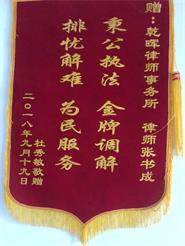 赠：乾晖律师事务所 律师张书成
秉公执法 金牌调解
排忧解难 为民服务
杜秀敏敬赠
二〇一八年九月十九日